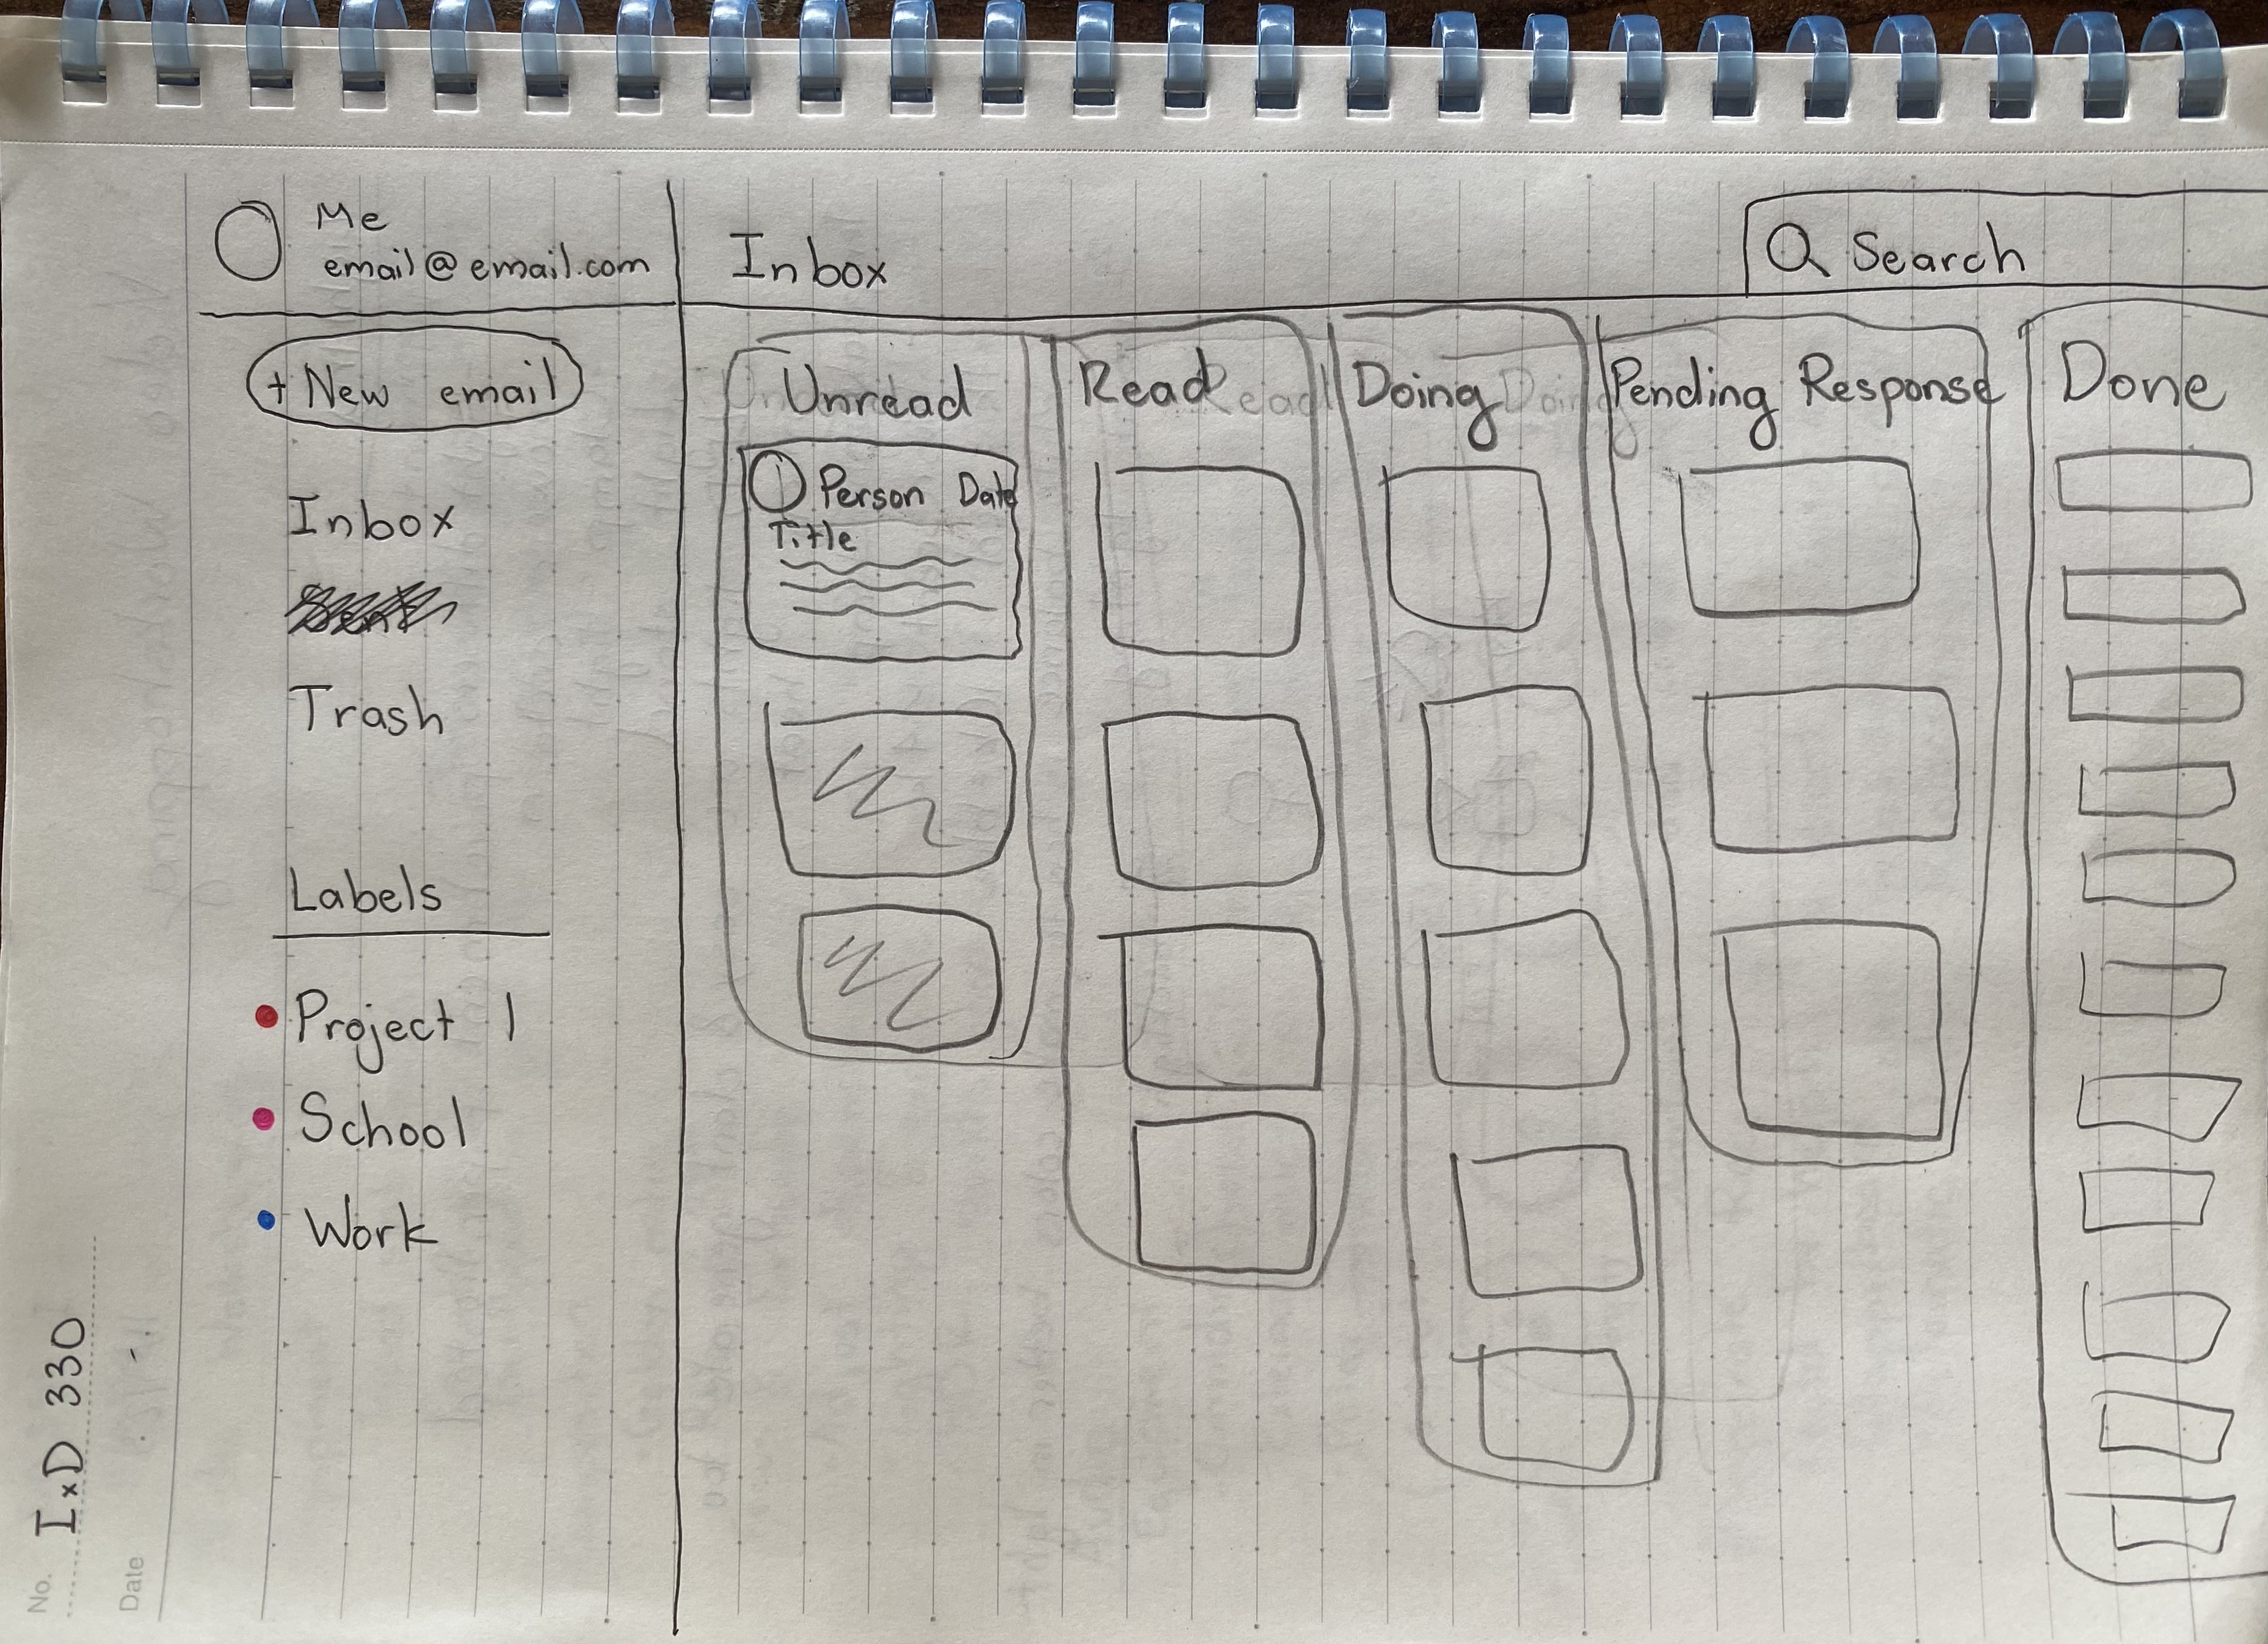 Me
email@email.com
Inbox
Search
+ New email
Inbox
Trash
Labels
Project 1
School
Work
Unread
Person Date
Title
Read
Doing
Pending Response
Done
No. IxD 330
Date